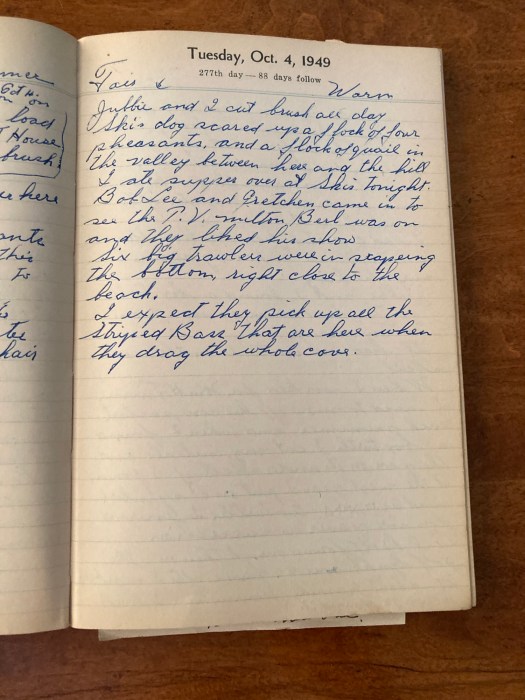 Tuesday, Oct. 4, 1949
277th day — 88 days follow
Fair & Warm
Jubbie and I cut brush all day
Skis dog scared up a flock of four
pheasants, and a flock of quail in
the valley between here and the hill
I ate supper over at Skis tonight.
Bob Lee and Gretchen came in to
see the T.V. milton Berl was on
and they liked his show
six big trawlers were in scapeing
the bottom right close to the
beach.
I expect they pick up all the
Striped Bass that are here when
they drag the whole cove.
on
load
House
brush
here
this
to
hair